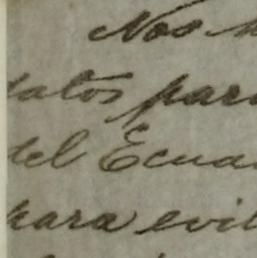 Nos
datos para
del Ecua
para evi